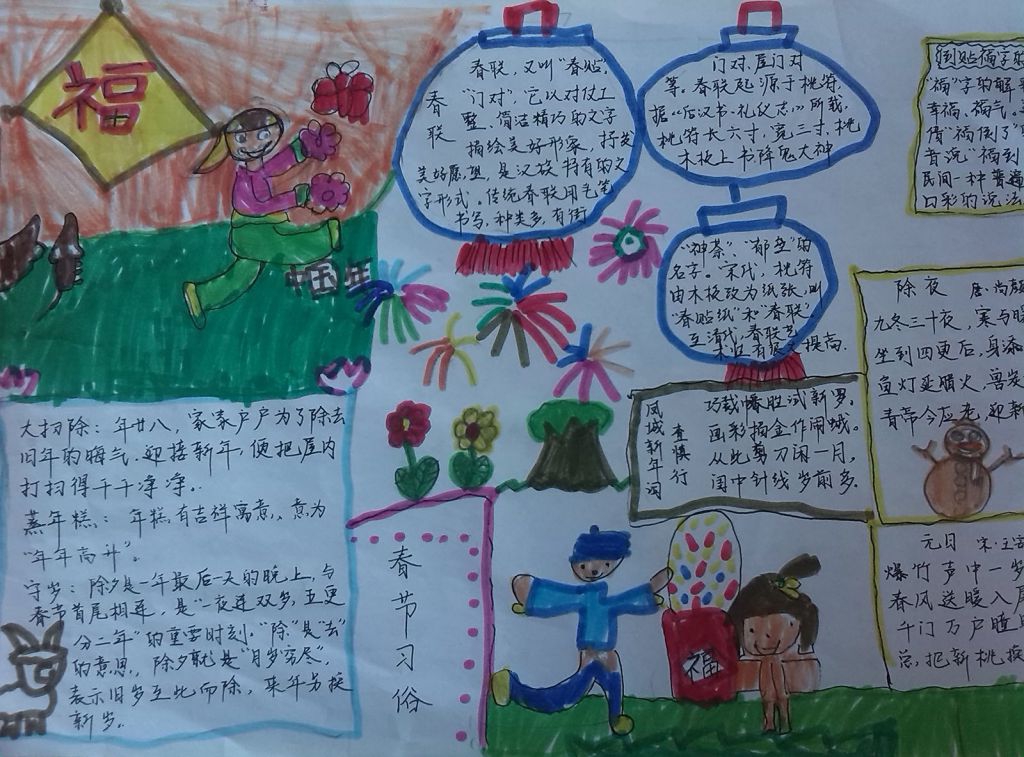 福
中国年
春联
春联，又叫“春贴”、
“门对”，它以对仗工
整、简洁精巧的文字
描绘美好形象，抒发
美好愿望，是汉族特有的文
字形式。传统春联用毛笔
书写，种类多，有街
门对，屋门对
等。春联起源于桃符，
据《后汉书·礼仪志》所载，
桃符长六寸，宽三寸，桃
木板上书降鬼大神
“神荼”、“郁垒”的
名字。宋代，桃符
由木板改为纸张，叫
“春贴纸”和“春联”
至清代，春联艺
术也有很大提高.
倒贴福字的
“福”字的解
幸福、福气。
倩“福倒了”
音说“福到
民间一种普遍
口彩的说法
大扫除：年廿八，家家户户为了除去
旧年的晦气，迎接新年，便把屋内
打扫得干干净净。
蒸年糕：年糕有吉祥寓意，意为
“年年高升”。
守岁：除夕是一年最后一天的晚上，与
春节首尾相连，是“一夜连双岁，五更
分二年”的重要时刻。“除”是“去”
的意思，除夕就是“月岁穷尽”，
表示旧岁至此而除，来年另换
新岁。
春节习俗
凤城新年词
查慎行
巧裁幡胜试新罗。
画彩描金作闹蛾。
从此剪刀闲一月，
闺中针线岁前多。
除夜
九冬三十夜，寒与暖
坐到四更后，身添
鱼灯延腊火，兽炭
青帝今应老，迎新
元日 宋·王安
爆竹声中一岁
春风送暖入屠
千门万户曈
总把新桃换
福